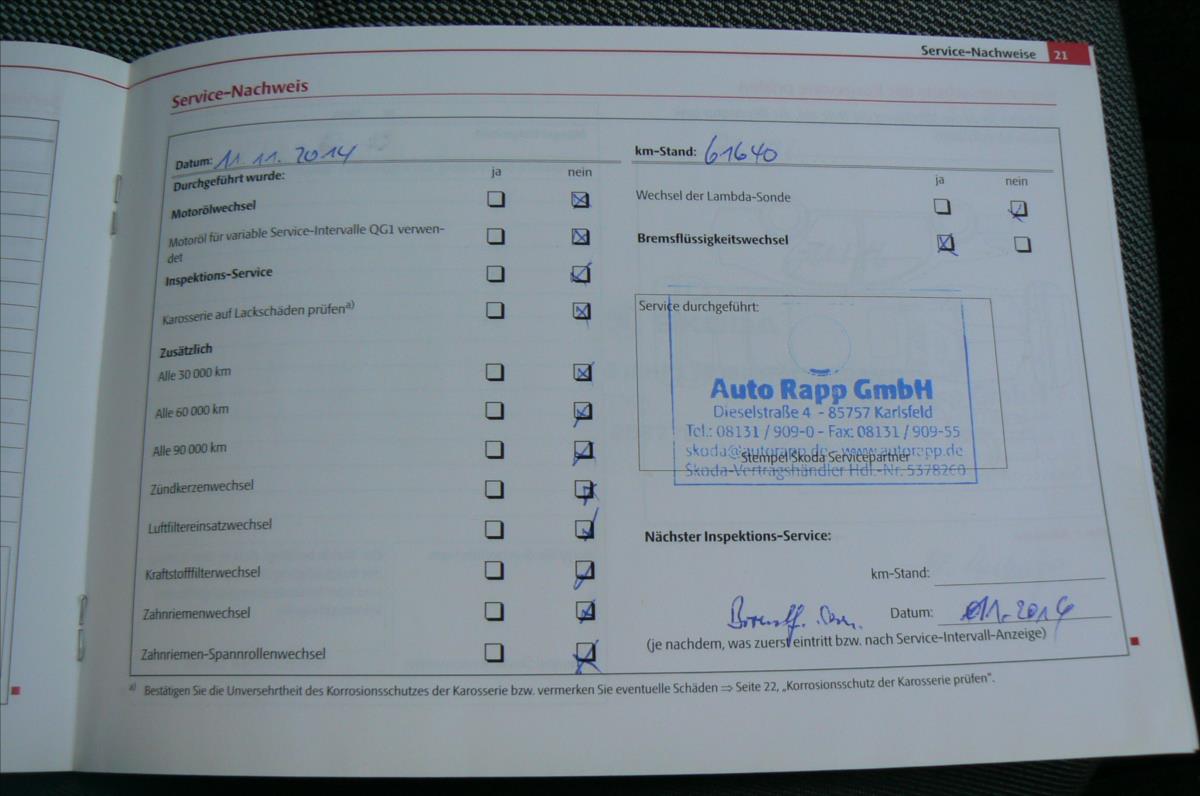 Service-Nachweise 21
Service-Nachweis
Datum: 11. 11. 2014
Durchgeführt wurde:
ja nein
Motorölwechsel
Motoröl für variable Service-Intervalle QG1 verwen-
det
Inspektions-Service
Karosserie auf Lackschäden prüfen a)
Zusätzlich
Alle 30 000 km
Alle 60 000 km
Alle 90 000 km
Zündkerzenwechsel
Luftfiltereinsatzwechsel
Kraftstofffilterwechsel
Zahnriemenwechsel
Zahnriemen-Spannrollenwechsel
km-Stand: 61640
ja nein
Wechsel der Lambda-Sonde
Bremsflüssigkeitswechsel
Service durchgeführt:
Auto Rapp GmbH
Dieselstraße 4 - 85757 Karlsfeld
Tel.: 08131 / 909-0 - Fax: 08131 / 909-55
skoda@autorapp.de - www.autorapp.de
Stempel Skoda Servicepartner
Skoda-Vertragshändler Hdl.-Nr. 5378260
Nächster Inspektions-Service:
km-Stand:
Datum:
(je nachdem, was zuerst eintritt bzw. nach Service-Intervall-Anzeige)
a) Bestätigen Sie die Unversehrtheit des Korrosionsschutzes der Karosserie bzw. vermerken Sie eventuelle Schäden ⇒ Seite 22, „Korrosionsschutz der Karosserie prüfen".